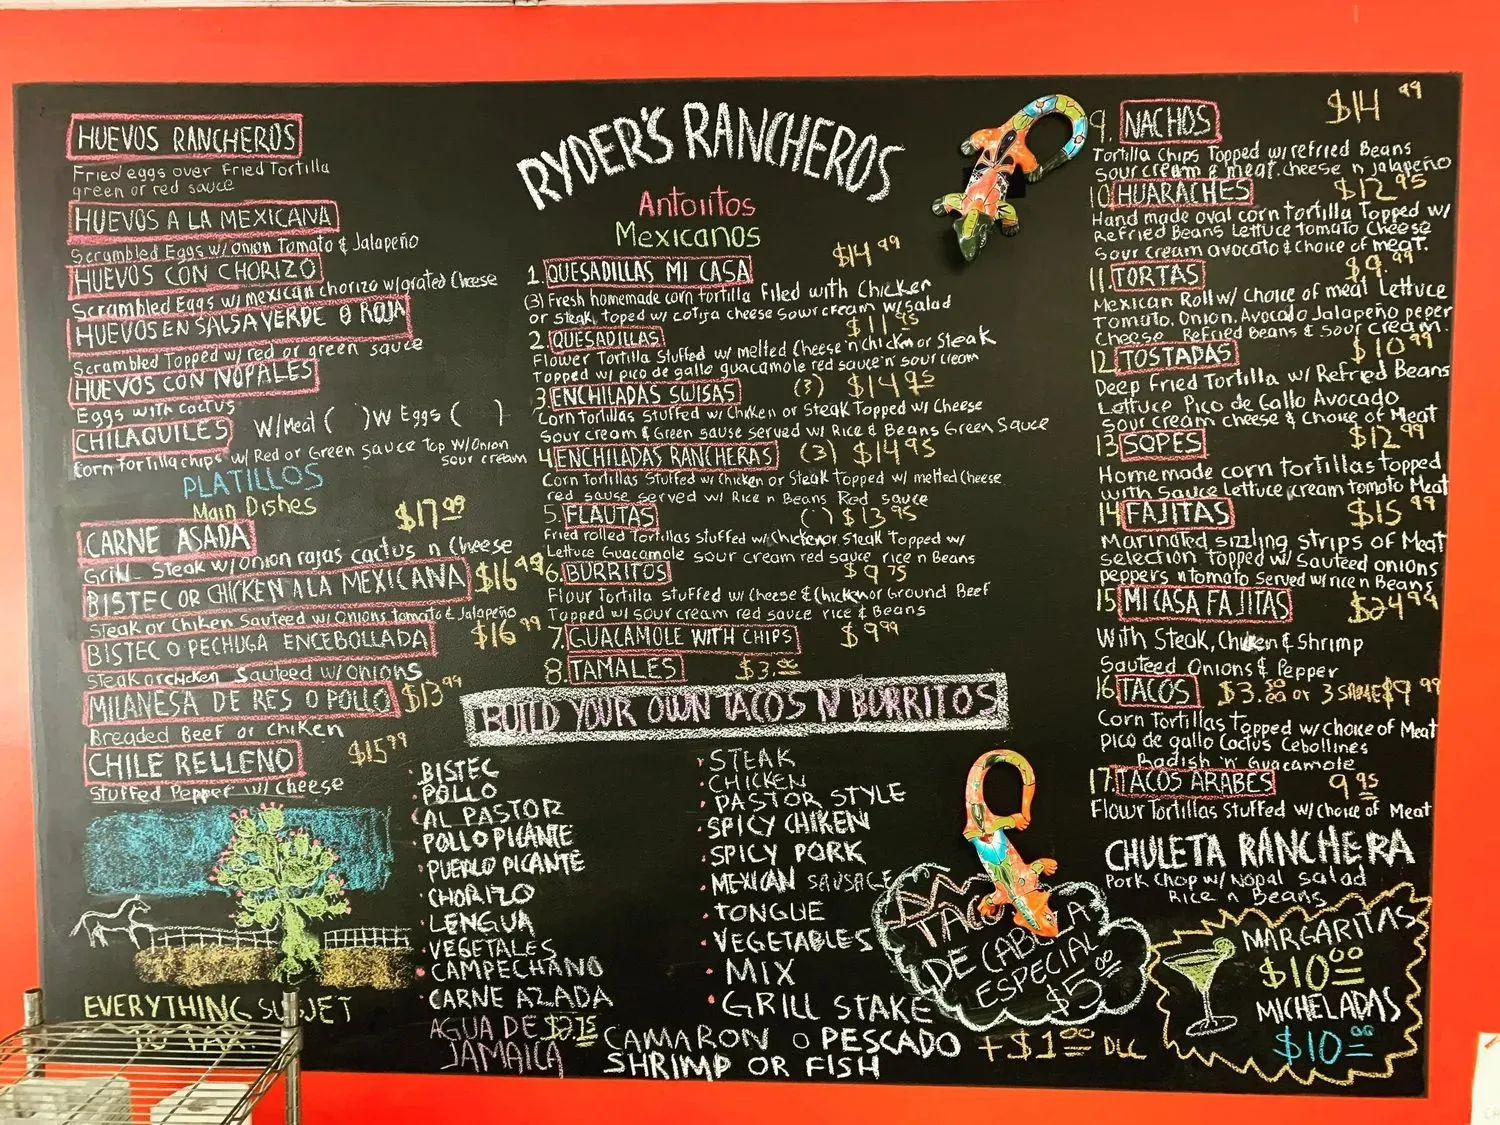 HUEVOS RANCHEROS
Fried eggs over Fried Tortilla
green or red sauce
HUEVOS A LA MEXICANA
Scrambled Eggs w/ Onion Tomato & Jalapeño
HUEVOS CON CHORIZO
Scrambled Eggs w/ mexican chorizo w/grated Cheese
HUEVOS EN SALSA VERDE O ROJA
Scrambled Topped w/ red or green sauce
HUEVOS CON NOPALES
Eggs with cactus
CHILAQUILES W/Meat ( ) W Eggs ( )
Corn Tortilla chips w/ Red or Green Sauce Top W/Onion
sour cream
PLATILLOS
Main Dishes
CARNE ASADA $17.99
Grill Steak w/ onion rajas cactus n Cheese
BISTEC OR CHICKEN A LA MEXICANA $16.99
Steak or Chiken Sauteed w/ Onions tomato & Jalapeño
BISTEC O PECHUGA ENCEBOLLADA $16.99
Steak or chicken Sauteed w/ onions
MILANESA DE RES O POLLO $13.99
Breaded Beef or chiken
CHILE RELLENO $15.99
Stuffed Pepper w/ cheese
EVERYTHING SUBJET
TO TAX.
RYDER'S RANCHEROS
Antojitos
Mexicanos
1. QUESADILLAS MI CASA $14.99
(3) Fresh homemade corn tortilla Filed with Chicken
or Steak, toped w/ cotija cheese sour cream w/ salad
2. QUESADILLAS $11.95
Flower Tortilla Stuffed w/ melted Cheese 'n' chicken or Steak
Topped w/ pico de gallo guacamole red sauce 'n' sour cream
3. ENCHILADAS SWISAS (3) $14.95
Corn tortillas stuffed w/ Chicken or Steak Topped w/ Cheese
Sour cream & Green sause served w/ Rice & Beans Green Sauce
4. ENCHILADAS RANCHERAS (3) $14.95
Corn tortillas Stuffed w/ Chicken or Steak Topped w/ melted Cheese
red sause served w/ Rice n Beans Red sauce
5. FLAUTAS ( ) $13.95
Fried rolled Tortillas stuffed w/ Chicken or Steak Topped w/
Lettuce Guacamole sour cream red sauce rice n Beans
6. BURRITOS $9.75
Flour Tortilla stuffed w/ Cheese & Chicken or Ground Beef
Topped w/ sour cream red sauce rice & Beans
7. GUACAMOLE WITH CHIPS $9.99
8. TAMALES $3.00
BUILD YOUR OWN TACOS N BURRITOS
BISTEC
POLLO
AL PASTOR
POLLO PICANTE
PUERLO PICANTE
CHORIZO
LENGUA
VEGETALES
CAMPECHANO
CARNE AZADA
AGUA DE $2.75
JAMAICA
STEAK
CHICKEN
PASTOR STYLE
SPICY CHIKEN
SPICY PORK
MEXICAN SAUSAGE
TONGUE
VEGETABLES
MIX
GRILL STAKE
CAMARON O PESCADO
SHRIMP OR FISH
+ $1.00 DLL
TACO
DE CABEZA
ESPECIAL
$5.00
9. NACHOS $14.99
Tortilla Chips Topped w/ refried Beans
Sour cream & meat. cheese n jalapeño
10. HUARACHES $12.95
Hand made oval corn tortilla Topped w/
Refried Beans Lettuce tomato Cheese
Sour cream avocato & choice of meat.
11. TORTAS $9.99
Mexican Roll w/ Choice of meat Lettuce
Tomato. Onion, Avocado Jalapeño peper
Cheese Refried Beans & Sour Cream.
12. TOSTADAS $10.99
Deep Fried Tortilla w/ Refried Beans
Lettuce Pico de Gallo Avocado
Sour cream cheese & Choice of Meat
13. SOPES $12.99
Homemade corn tortillas topped
with sauce Lettuce cream tomato Meat
14. FAJITAS $15.99
Marinated sizzling strips of Meat
selection topped w/ sauteed onions
peppers n tomato served w/ rice n Beans
15. MI CASA FAJITAS $24.99
With Steak, Chicken & Shrimp
Sauteed Onions & Pepper
16. TACOS $3.50 or 3 SAME $9.99
Corn Tortillas topped w/ choice of Meat
pico de gallo Cactus Cebollines
Radish 'n' Guacamole
17. TACOS ARABES 9.95
Flour Tortillas Stuffed w/ choice of Meat
CHULETA RANCHERA
Pork Chop w/ Nopal Salad
Rice n Beans
MARGARITAS
$10.00
MICHELADAS
$10.00